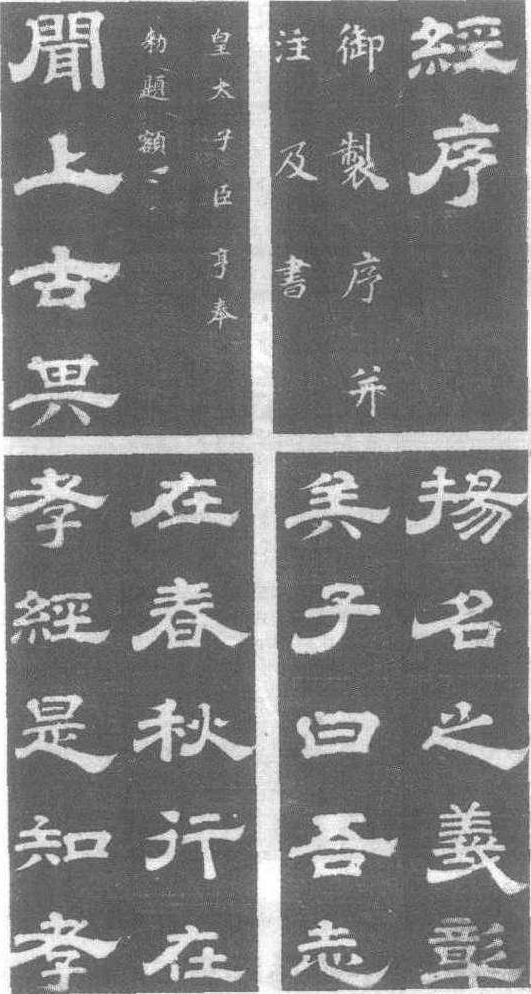 經序
御製序并
注及書
皇太子臣亨奉
勅題額
聞上古其
揚名之義彰
矣子曰吾志
在春秋行在
孝經是知孝